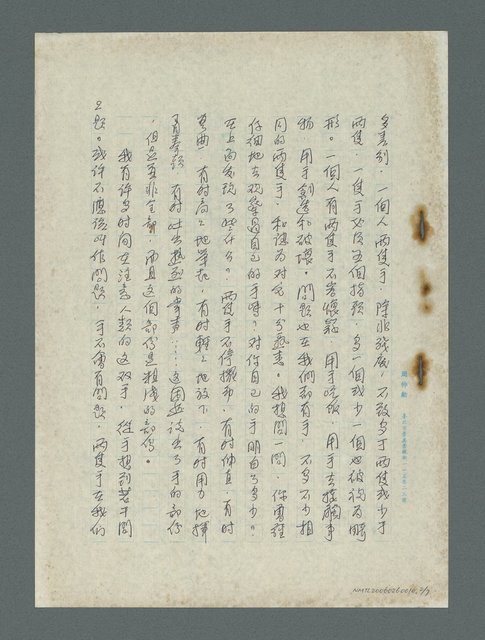 多差別。一個人兩隻手，除非殘廢，不致多了兩隻或少于
兩隻。一隻手必須五個指頭，多一個或少一個也被視為畸
形。一個人有兩隻手不容懷疑。用手吃飯，用手去接觸事
物，用手創造和破壞。問題也在我們都有手，不多不少相
同的兩隻手，和認為對它十分熟悉。我想問一問，你曾經
仔細地去觀察過自己的手嗎？對你自己的手明白了多少。
在上面發現了些什么。兩隻手不停擺動，有時伸直，有時
彎曲，有時高高地舉起，有時輕輕地放下，有時用力地揮
有時吐出熱烈的掌聲……這固然說出了手的部份
，但是並非全部，而且這個部份是粗淺的部份。
我有許多時間在注意人類的這双手，從手想到若干問
題。或許不應該叫作問題，手不會有問題，兩隻手在我們
2
周仲勛
NMTL20060260010, 2/7